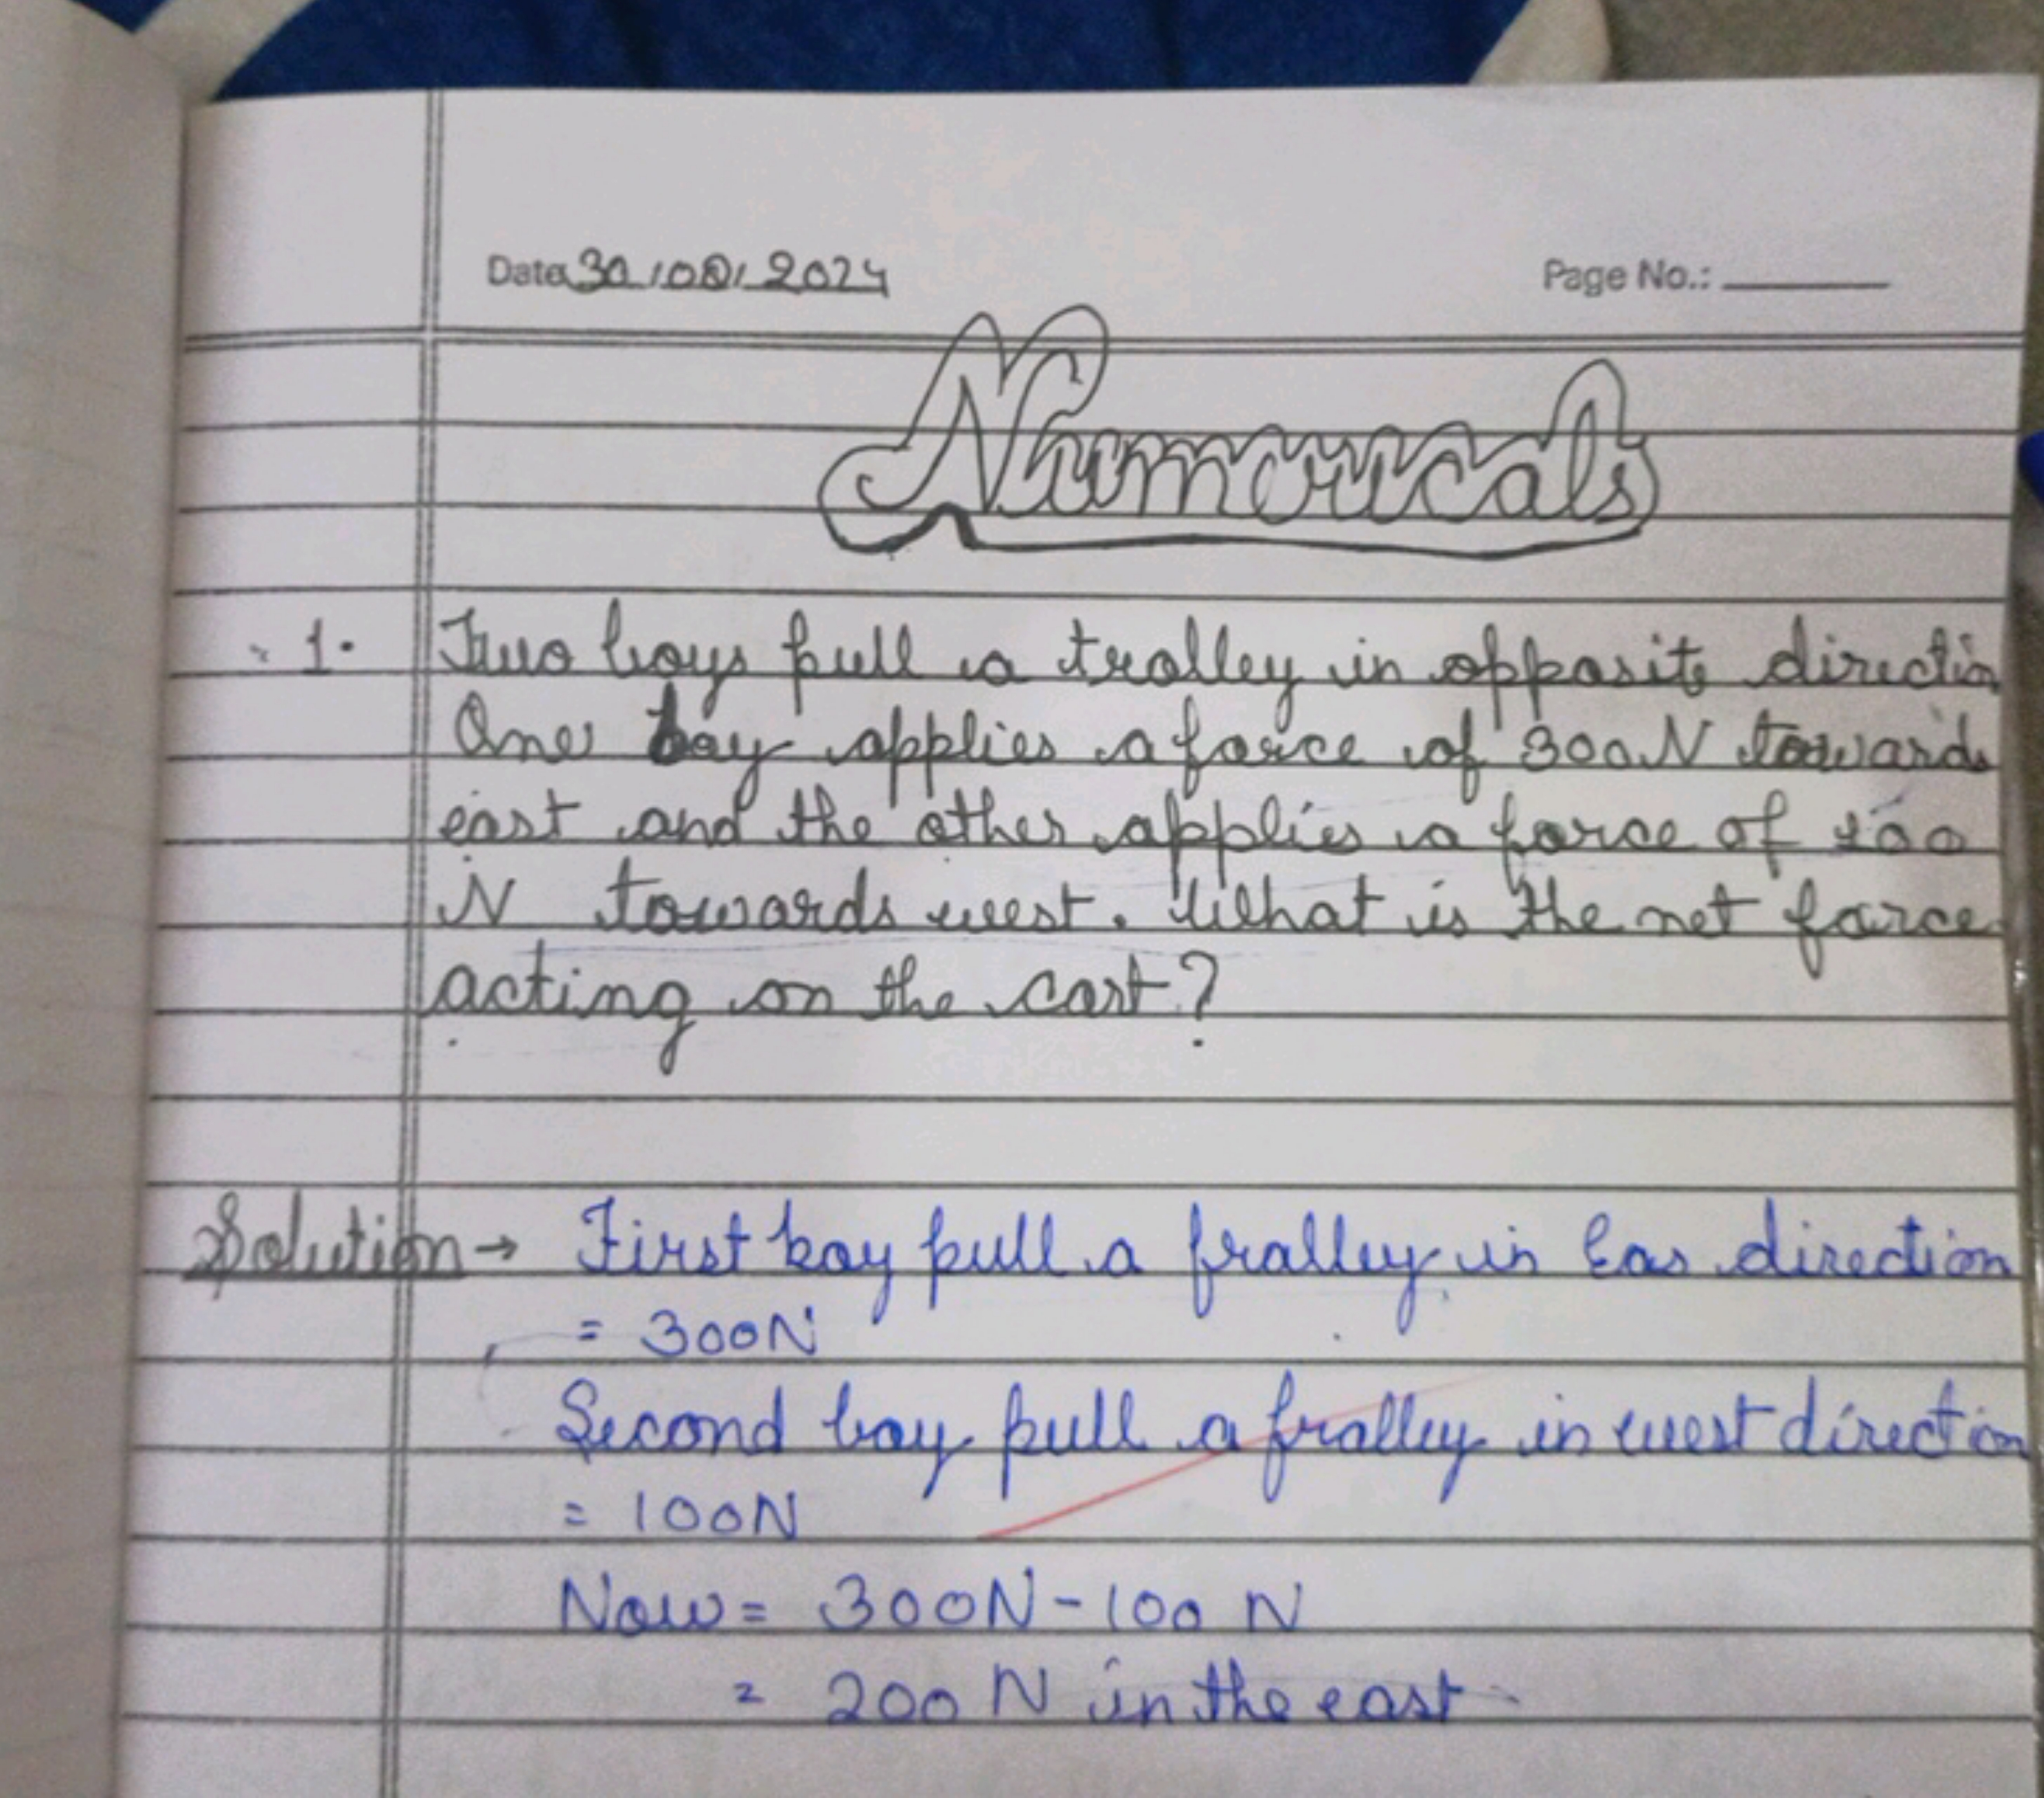 Date 30/08/2024
Page No.:
Numericals
1. Two boys pull a trolley in opposite directin
One boy applies a force of 300N towards
east and the other applies a force of 100
N towards west. What is the net force
acting on the cart?
Solution→ First boy pull a fralley in Eas direction
= 300N
Second boy pull a fralley in west direction
= 100N
Now = 300N-100 N
= 200 N in the east